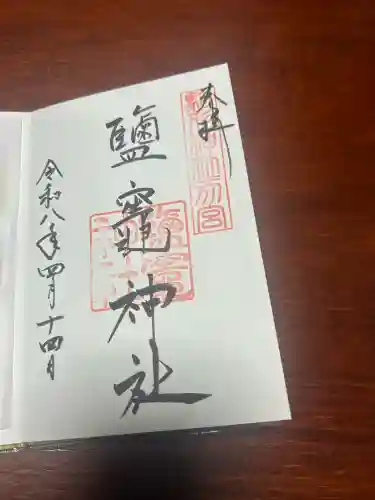 奉拝
鹽竈神社
令和八年四月十四日